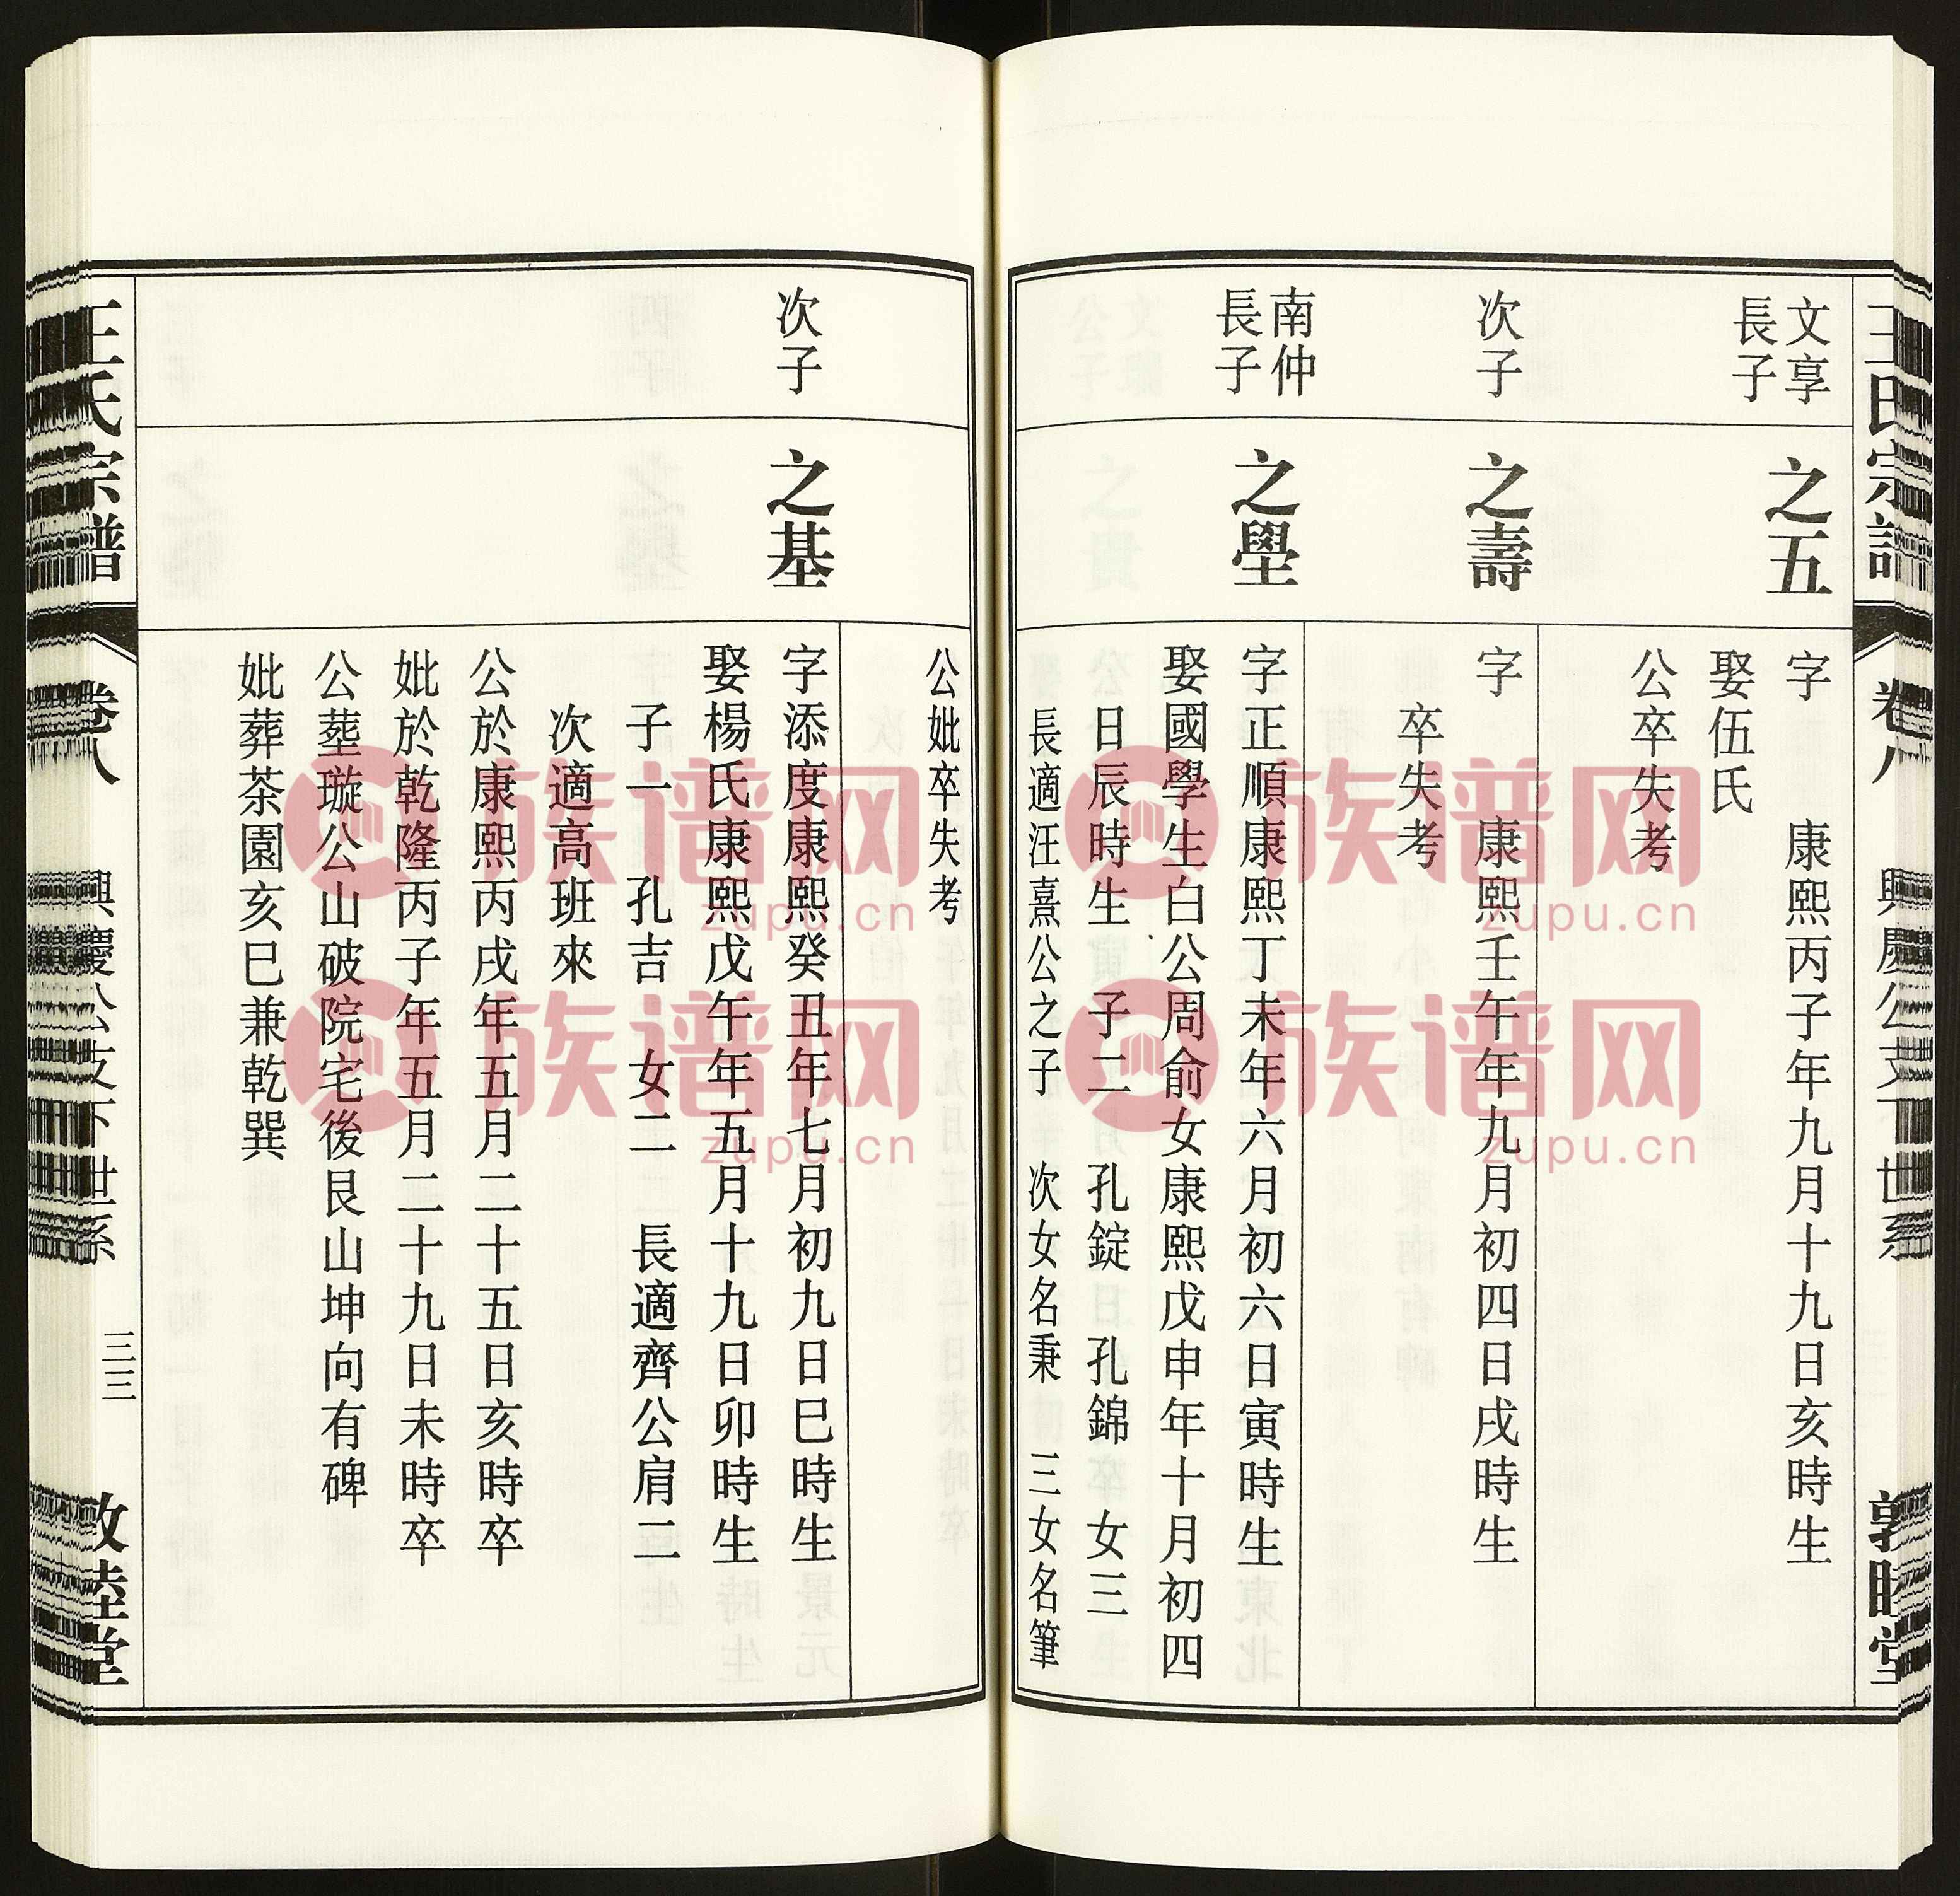 文享
長子
之五
字　康熙丙子年九月十九日亥時生
娶伍氏
公卒失考
次子
之壽
字　康熙壬午年九月初四日戌時生
卒失考
南仲
長子
之壆
字正順康熙丁未年六月初六日寅時生
娶國學生白公周俞女康熙戊申年十月初四
日辰時生　子二　孔錠　孔錦　女三
長適汪熹公之子　次女名秉　三女名筆
公妣卒失考
次子
之基
字添度康熙癸丑年七月初九日巳時生
娶楊氏康熙戊午年五月十九日卯時生
子一　孔吉　女二　長適齊公肩二
次適高班來
公於康熙丙戌年五月二十五日亥時卒
妣於乾隆丙子年五月二十九日未時卒
公塟璇公山破院宅後艮山坤向有碑
妣葬茶園亥巳兼乾巽
王氏宗譜
卷八
興慶公支下世系
三三
敦睦堂
族谱网
zupu.cn
族谱网
zupu.cn
族谱网
zupu.cn
族谱网
zupu.cn